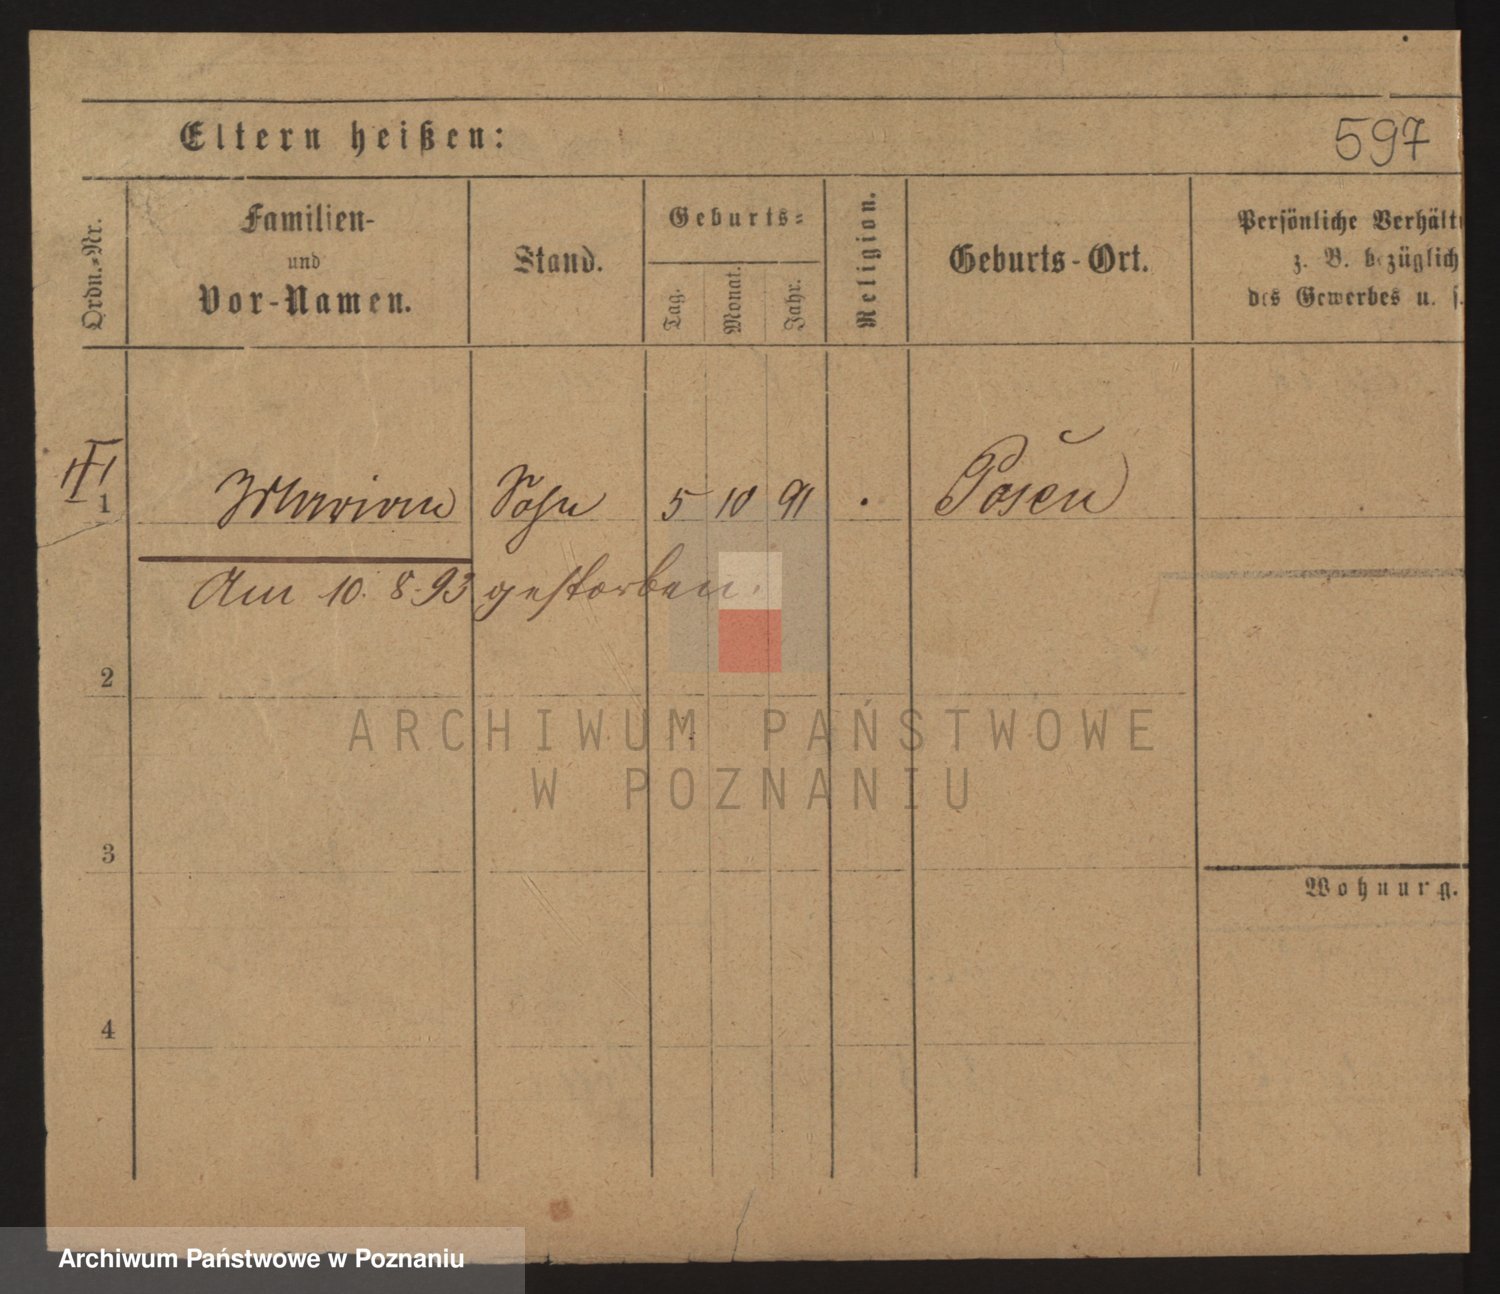 Eltern heißen:
597
Ordn.-Nr.
Familien-
und
Vor-Namen.
Stand.
Geburts-
Tag.
Monat.
Jahr.
Religion.
Geburts-Ort.
Persönliche Verhält
z. B. bezüglich
des Gewerbes u. s.
1 Marian Sohn 5 10 91 Posen
Am 10. 8. 93 gestorben.
2
ARCHIWUM PAŃSTWOWE
W POZNANIU
3
Wohnung.
4
Archiwum Państwowe w Poznaniu